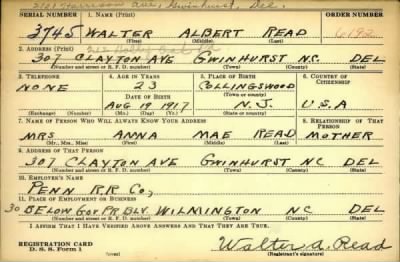 2101 Harrison Ave, Gwinhurst, Del.
SERIAL NUMBER 1. NAME (Print) ORDER NUMBER
3745 WALTER ALBERT READ 6192
(First) (Middle) (Last)
2. ADDRESS (Print)
307 CLAYTON AVE GWINHURST N.C. DEL
(Number and street or R. F. D. number) (Town) (County) (State)
3. TELEPHONE 4. AGE IN YEARS 5. PLACE OF BIRTH 6. COUNTRY OF CITIZENSHIP
NONE 23 COLLINGSWOOD
DATE OF BIRTH (Town or county)
AUG 19 1917 N.J. U.S.A
(Exchange) (Number) (Mo.) (Day) (Yr.) (State or country)
7. NAME OF PERSON WHO WILL ALWAYS KNOW YOUR ADDRESS RELATIONSHIP OF THAT PERSON
MRS ANNA MAE READ MOTHER
(Mr., Mrs., Miss) (First) (Middle) (Last)
8. ADDRESS OF THAT PERSON
307 CLAYTON AVE GWINHURST NC DEL
(Number and street or R. F. D. number) (Town) (County) (State)
10. EMPLOYER'S NAME
PENN R.R Co,
11. PLACE OF EMPLOYMENT OR BUSINESS
30 BELOW GOV. PR BLV. WILMINGTON NC DEL
(Number and street or R. F. D. number) (Town) (County) (State)
I AFFIRM THAT I HAVE VERIFIED ABOVE ANSWERS AND THAT THEY ARE TRUE.
REGISTRATION CARD
D. S. S. Form 1 (over) Walter A. Read
(Registrant's signature)